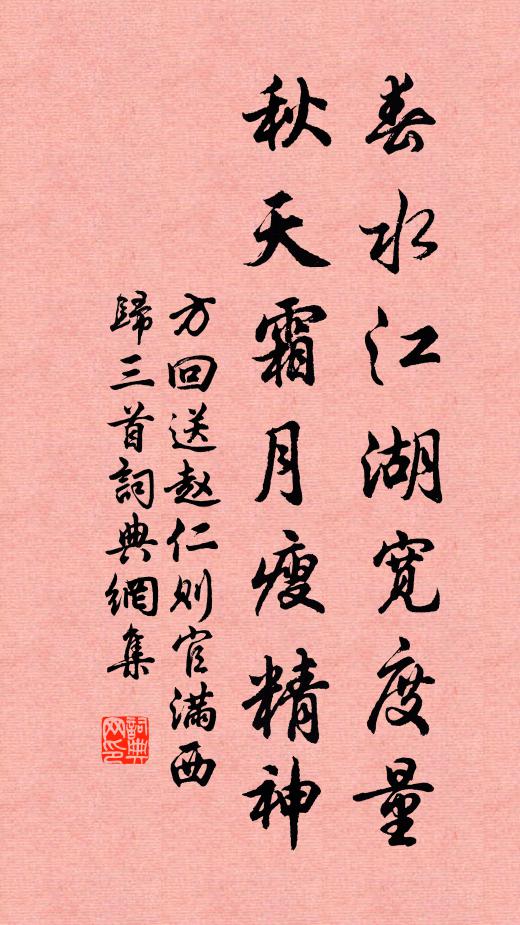 春水江湖宽度量
秋天霜月瘦精神
方回送赵仁则官满西
歸三首詞典網集
詞典網印